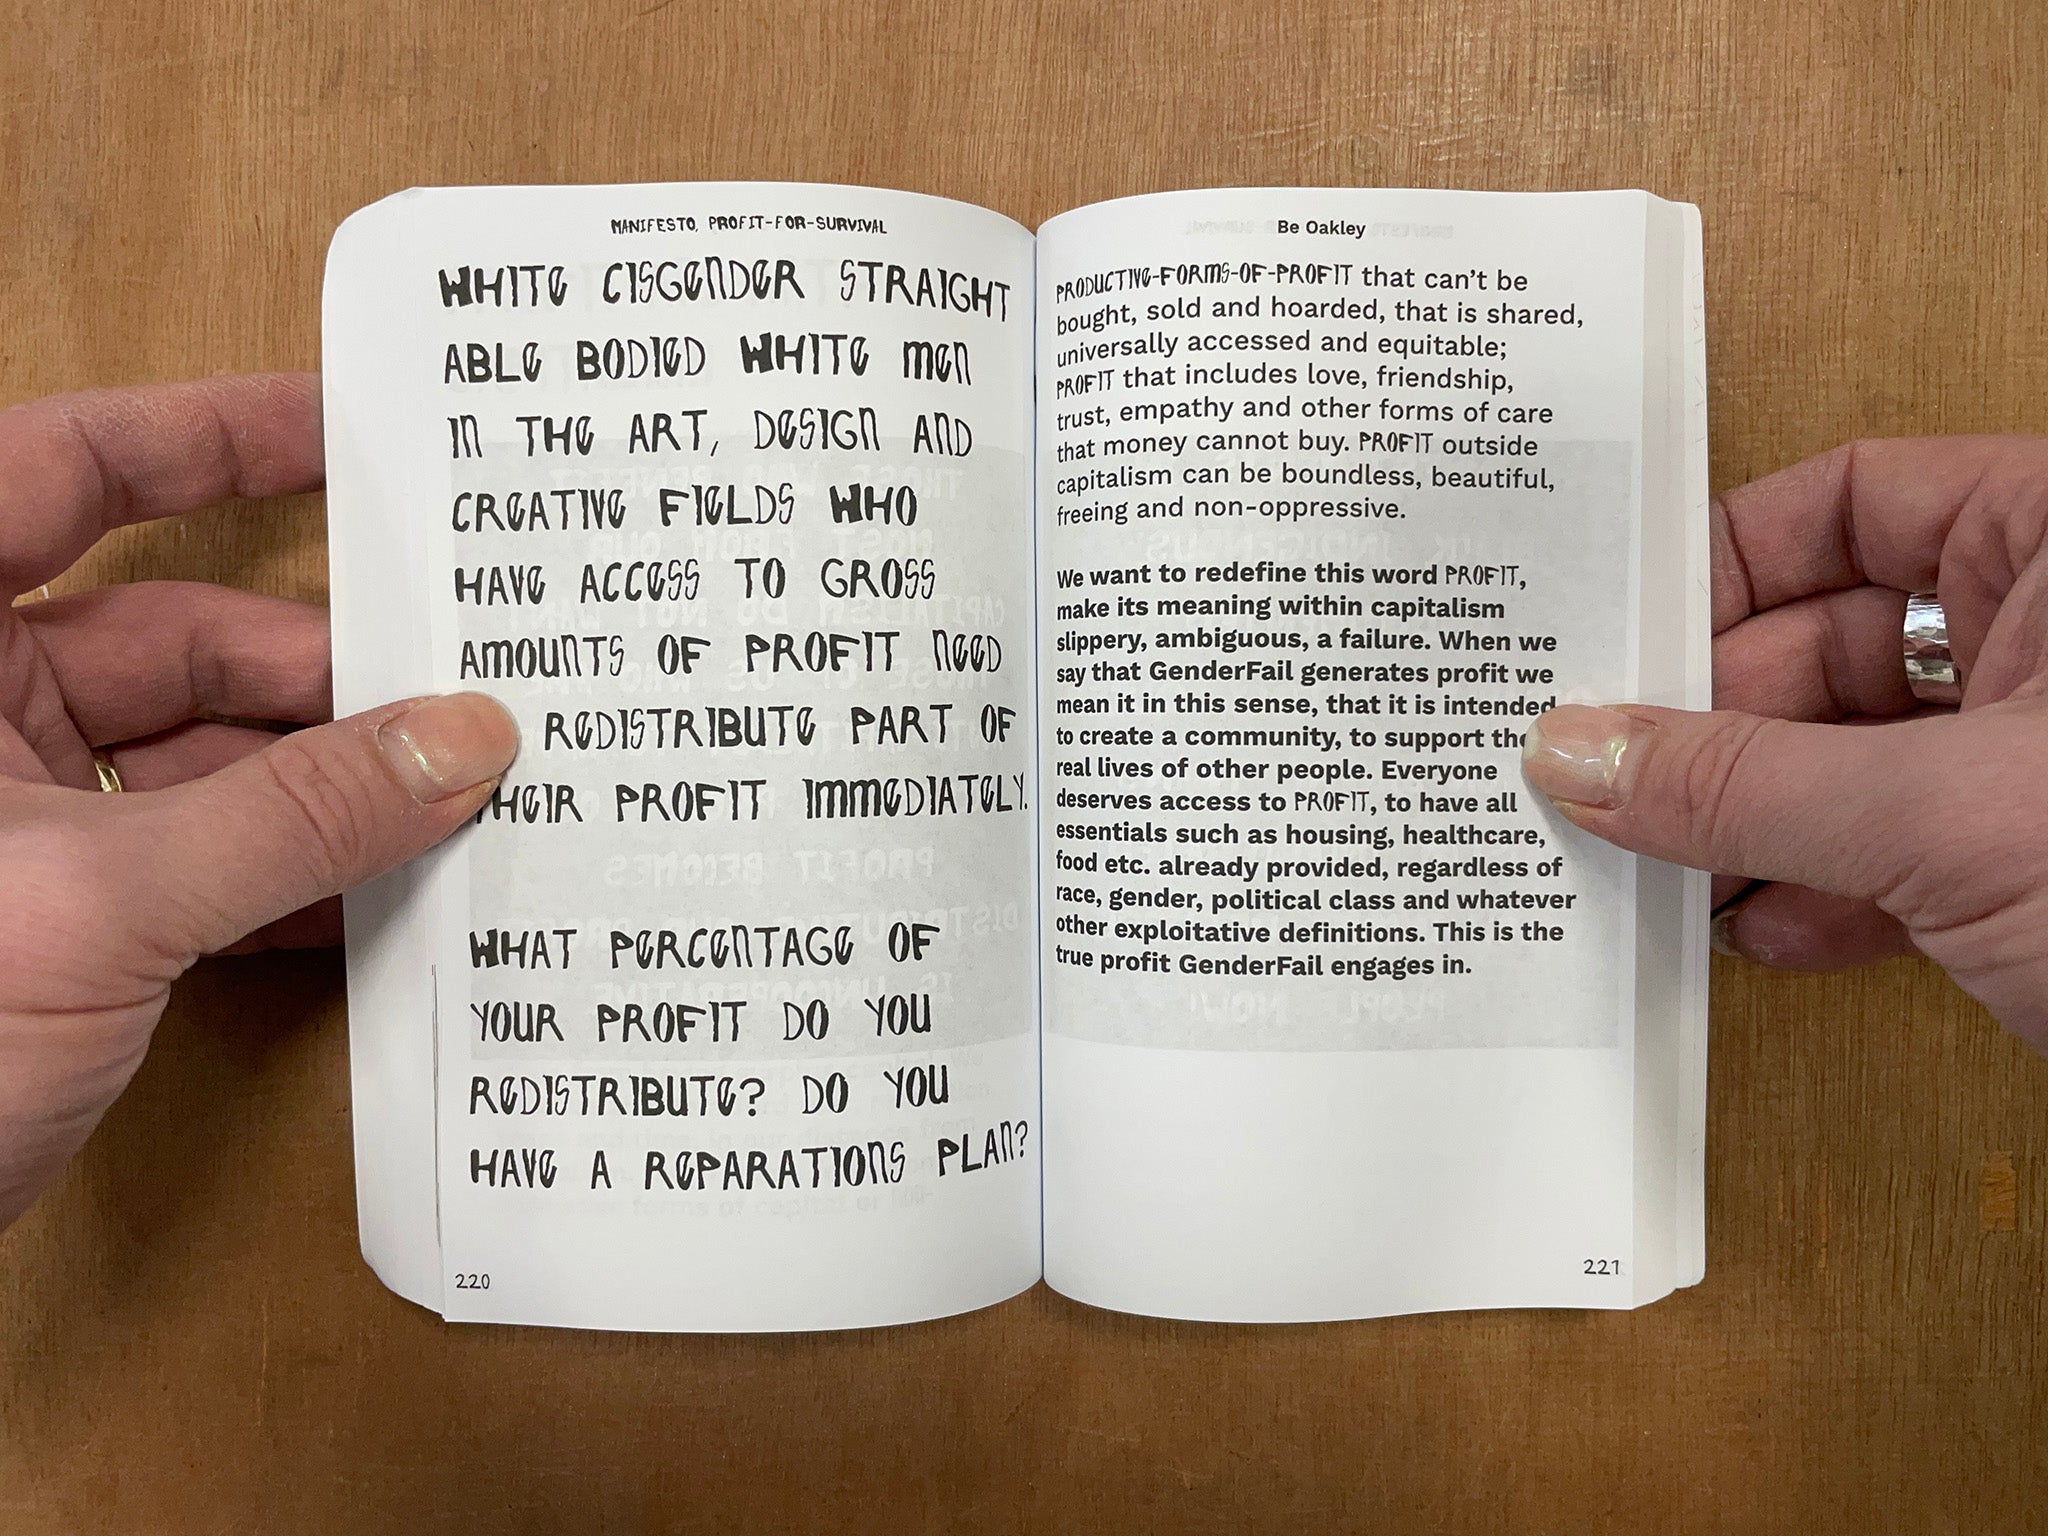 MANIFESTO, PROFIT-FOR-SURVIVAL
WHITE CISGENDER STRAIGHT
ABLE BODIED WHITE MEN
IN THE ART, DESIGN AND
CREATIVE FIELDS WHO
HAVE ACCESS TO GROSS
AMOUNTS OF PROFIT NEED
REDISTRIBUTE PART OF
THEIR PROFIT IMMEDIATELY.
WHAT PERCENTAGE OF
YOUR PROFIT DO YOU
REDISTRIBUTE? DO YOU
HAVE A REPARATIONS PLAN?
220
Be Oakley
PRODUCTIVE-FORMS-OF-PROFIT that can't be
bought, sold and hoarded, that is shared,
universally accessed and equitable;
PROFIT that includes love, friendship,
trust, empathy and other forms of care
that money cannot buy. PROFIT outside
capitalism can be boundless, beautiful,
freeing and non-oppressive.
We want to redefine this word PROFIT,
make its meaning within capitalism
slippery, ambiguous, a failure. When we
say that GenderFail generates profit we
mean it in this sense, that it is intended
to create a community, to support the
real lives of other people. Everyone
deserves access to PROFIT, to have all
essentials such as housing, healthcare,
food etc. already provided, regardless of
race, gender, political class and whatever
other exploitative definitions. This is the
true profit GenderFail engages in.
221